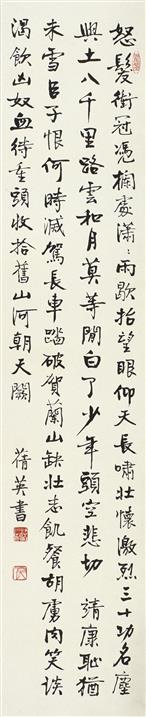 怒髮衝冠憑欄處瀟〻雨歇抬望眼仰天長嘯壯懷激烈三十功名塵
與土八千里路雲和月莫等閒白了少年頭空悲切 靖康恥猶
未雪臣子恨何時滅駕長車踏破賀蘭山缺壯志飢餐胡虜肉笑談
渴飲凶奴血待重頭收拾舊山河朝天闕 蒨英書